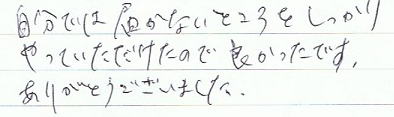 自分では届かないところをしっかり
やっていただけたので良かったです。
ありがとうございました。